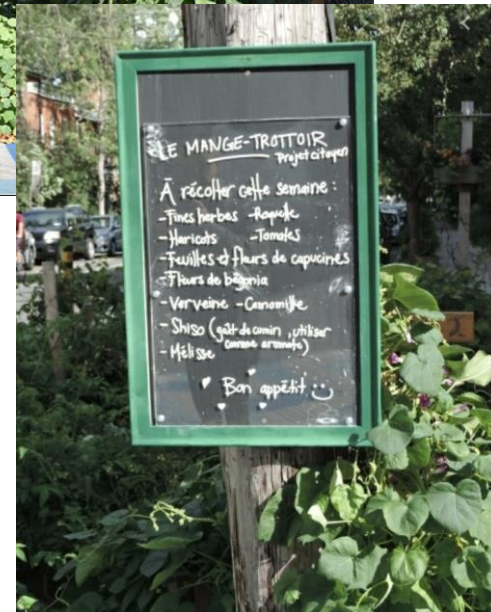 LE MANGE-TROTTOIR
Projet citoyen
À récolter cette semaine :
-Fines herbes -Roquette
-Haricots -Tomates
-Feuilles et fleurs de capucines
-Fleurs de bégonia
- Verveine -Camomille
- Shiso (goût de cumin, utiliser
comme aromate)
- Mélisse
Bon appétit